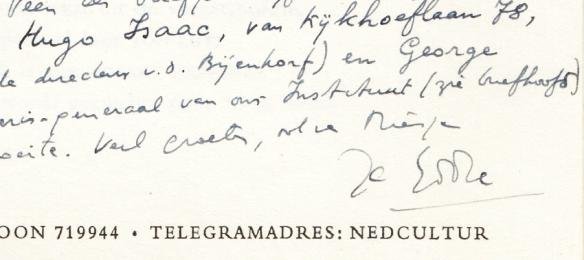 Hugo Isaac, van Kijkhoeflaan 78,
de directeur v.d. Bijenkorf) en George
ris-generaal van ons Instituut (zie briefhoofd)
oeite. Veel groeten, ook
Je Eddie
OON 719944 • TELEGRAMADRES: NEDCULTUR